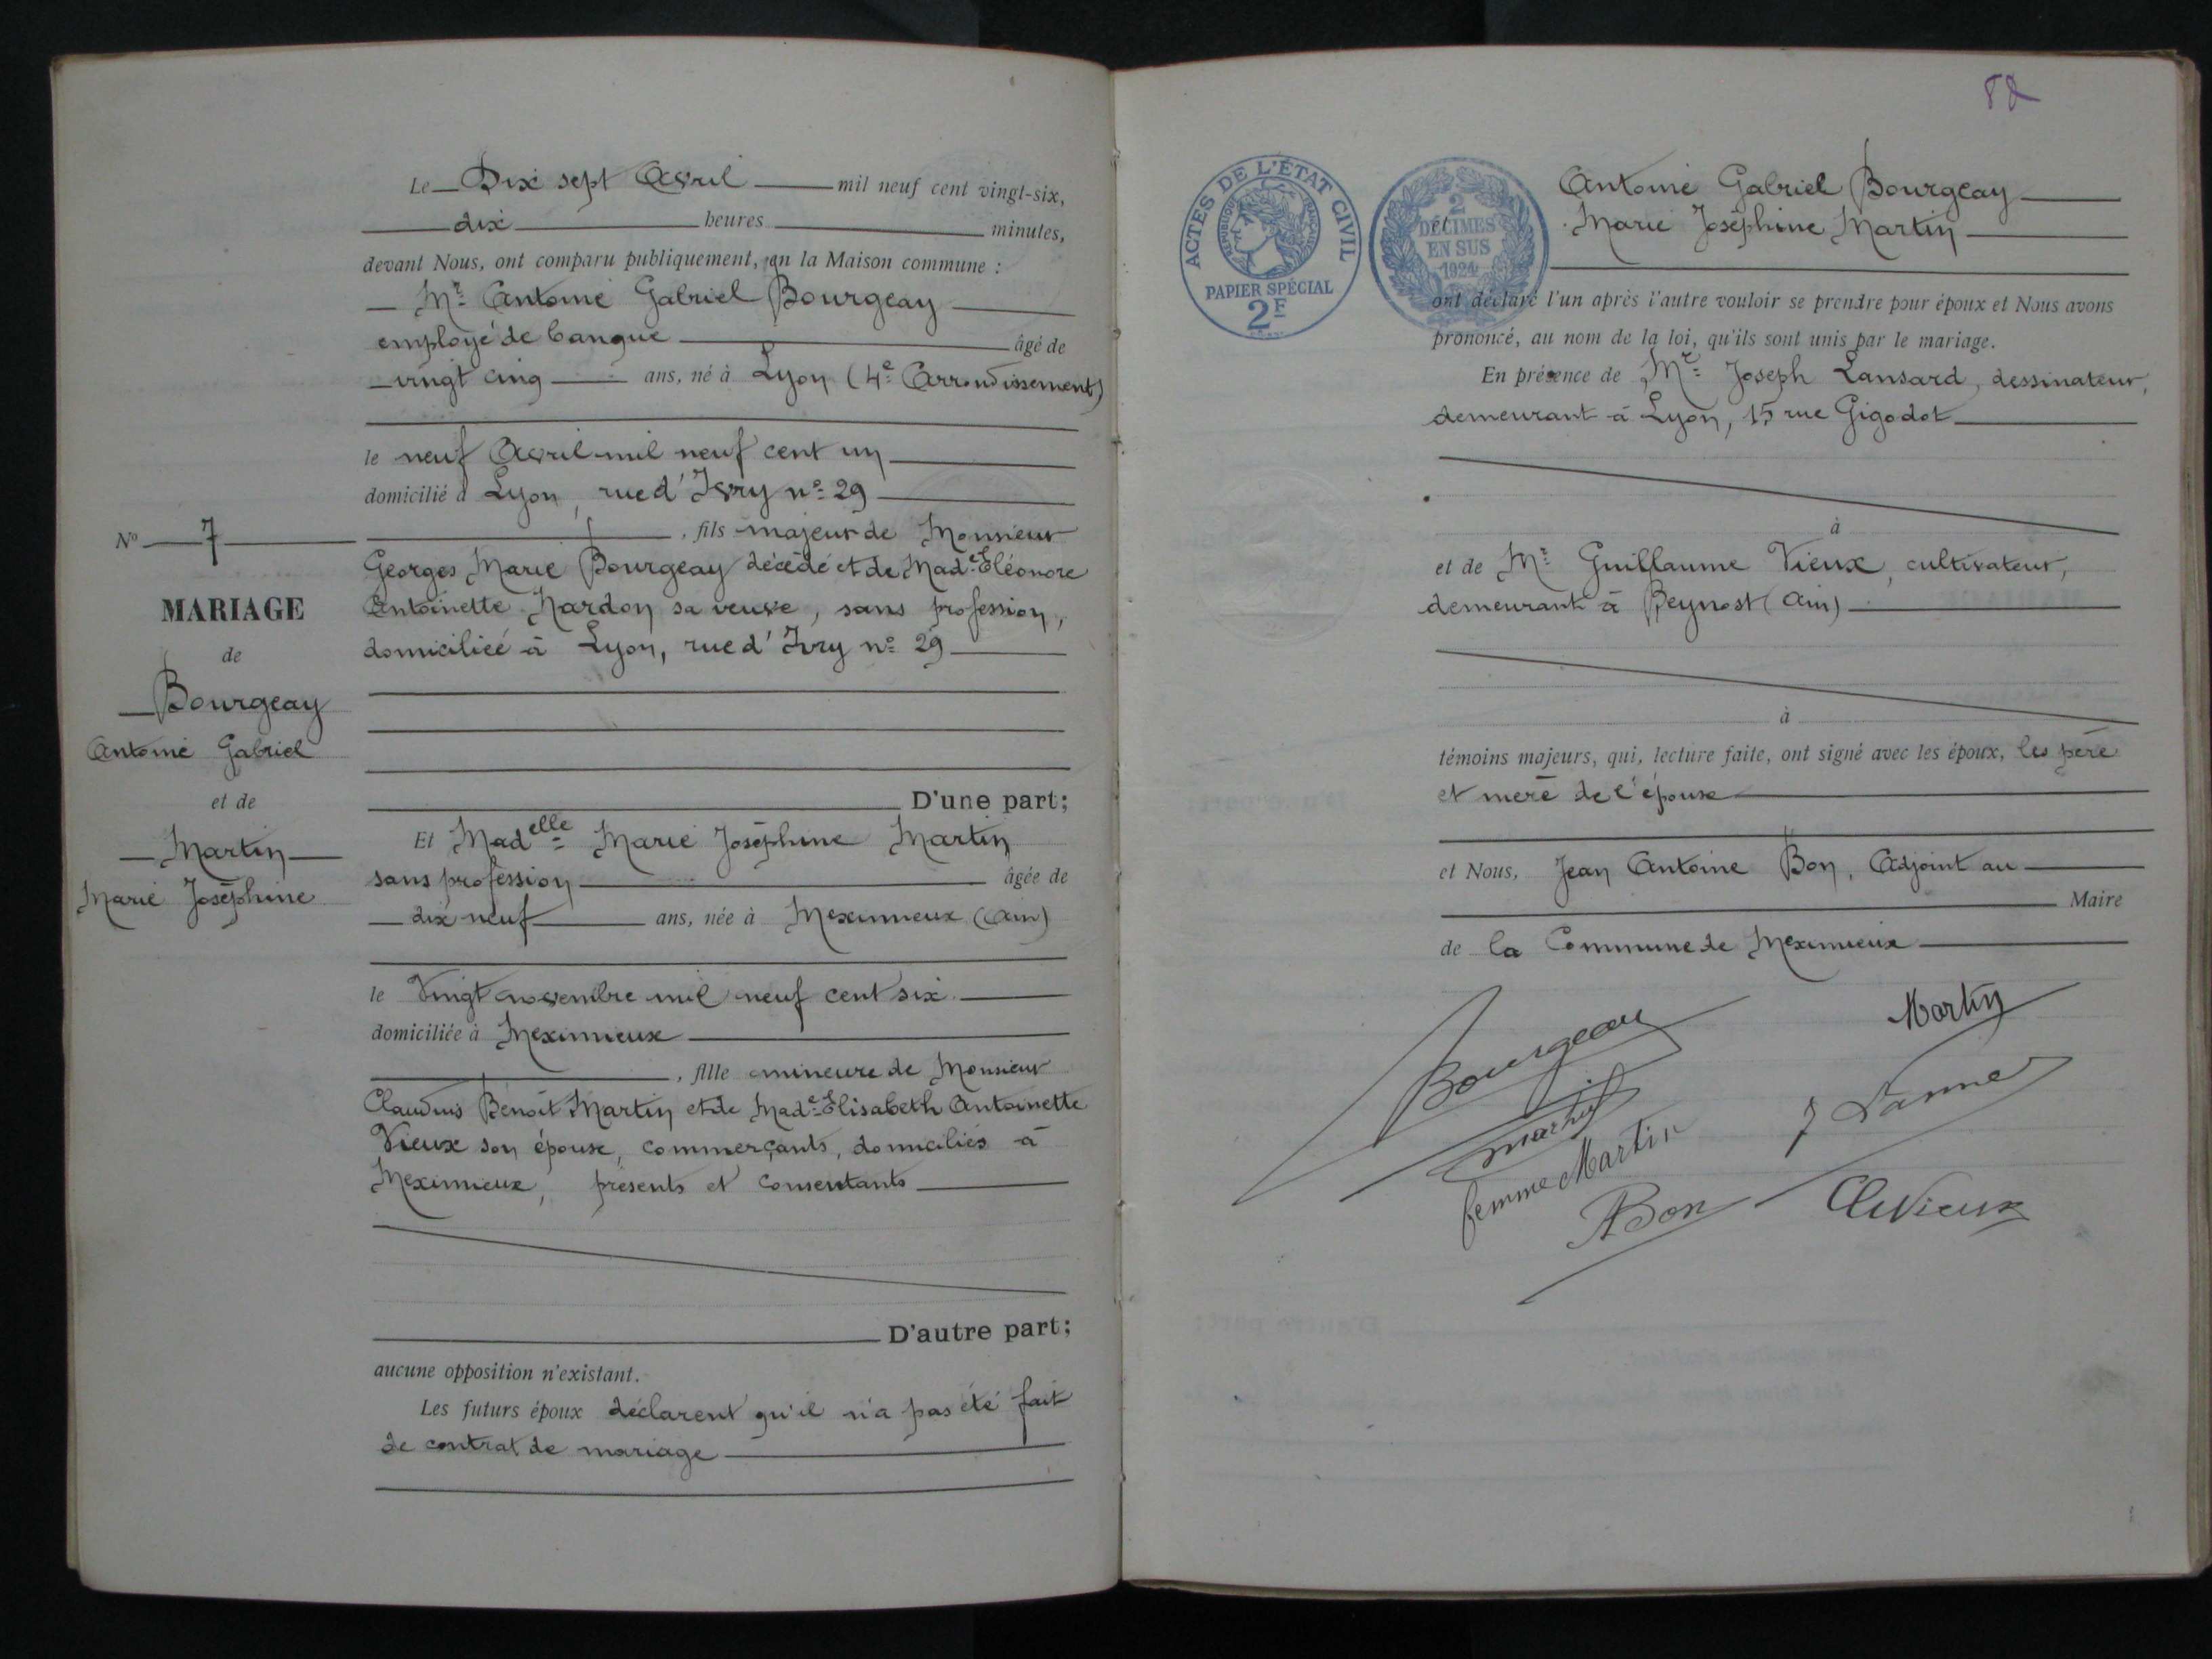 Le Dix sept Avril mil neuf cent vingt-six,
dix heures minutes,
devant Nous, ont comparu publiquement, en la Maison commune :
Mr Antoine Gabriel Bourgeay
employé de banque âgé de
vingt cinq ans, né à Lyon (4e Arrondissement)
le neuf Avril mil neuf cent un
domicilié à Lyon, rue d'Ivry no 29
, fils majeur de Monsieur
Georges Marie Bourgeay décédé et de Made Eléonore
Antoinette Nardon sa veuve, sans profession,
domiciliée à Lyon, rue d'Ivry no 29
D'une part;
No 7
MARIAGE
de
Bourgeay
Antoine Gabriel
et de
Martin
Marie Joséphine
Et Madelle Marie Joséphine Martin
sans profession âgée de
dix neuf ans, née à Meximieux (Ain)
le Vingt novembre mil neuf cent six
domiciliée à Meximieux
, fille mineure de Monsieur
Claudius Benoît Martin et de Made Elisabeth Antoinette
Vieux son épouse, commerçants, domiciliés à
Meximieux, présents et consentants
D'autre part;
aucune opposition n'existant.
Les futurs époux déclarent qu'il n'a pas été fait
de contrat de mariage
ACTES DE L'ÉTAT CIVIL
RÉPUBLIQUE FRANÇAISE
PAPIER SPÉCIAL
2F
2
DÉCIMES
EN SUS
1924
Antoine Gabriel Bourgeay
Marie Joséphine Martin
ont déclaré l'un après l'autre vouloir se prendre pour époux et Nous avons
prononcé, au nom de la loi, qu'ils sont unis par le mariage.
En présence de Mr Joseph Lansard, dessinateur,
demeurant à Lyon, 15 rue Gigodot
à
et de Mr Guillaume Vieux, cultivateur,
demeurant à Beynost (Ain)
à
témoins majeurs, qui, lecture faite, ont signé avec les époux, les père
et mère de l'épouse
et Nous, Jean Antoine Bon, Adjoint au
Maire
de la Commune de Meximieux
Bourgeay
Martin
Martin
femme Martin
ABon
Vieux